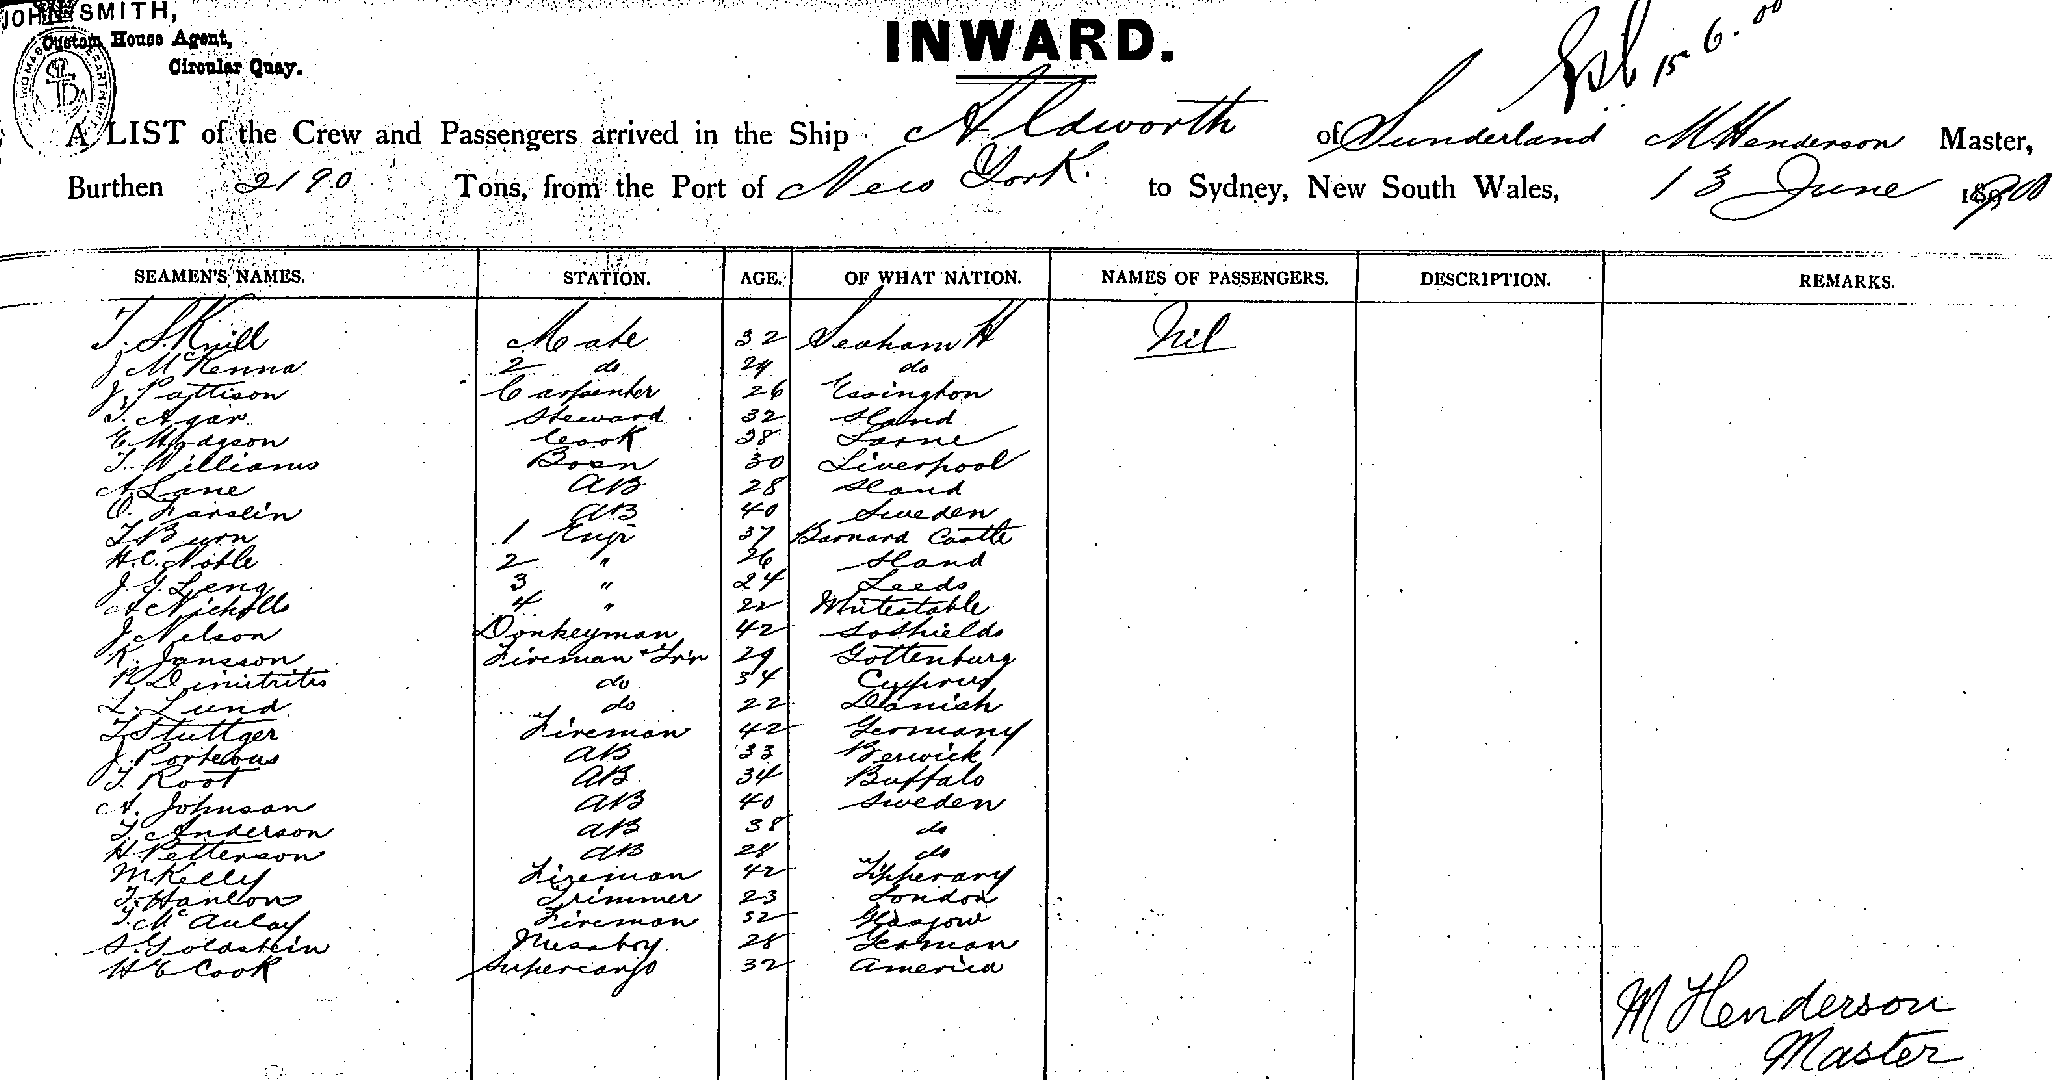 JOHN SMITH,
Custom House Agent,
Circular Quay.
INWARD.
15 6. 00
A LIST of the Crew and Passengers arrived in the Ship Aldworth of Sunderland M Henderson Master,
Burthen 2190 Tons, from the Port of New York. to Sydney, New South Wales, 13 June 1900
SEAMEN'S NAMES. STATION. AGE. OF WHAT NATION. NAMES OF PASSENGERS. DESCRIPTION. REMARKS.
T. S. Knill Mate 32 Seaham H Nil
J McKenna 2 do 24 do
J. Pattison Carpenter 26 Essington
T. Agar Steward 32 Sland
E. Hodgson Cook 38 Larne
T. Williams Bosn 30 Liverpool
A Lane AB 28 Sland
O. Farslin AB 40 Sweden
T Burn 1 Engr 37 Barnard Castle
H. C. Noble 2 " 26 Sland
J. G. Leng 3 " 24 Leeds
A Nicholls 4 " 22 Whitestable
J Nelson Donkeyman 42 So Shields
K. Jansson Fireman & Trr 29 Gottenburg
N Dimitrits do 34 Cyprus
L. Lund do 22 Danish
F Stuttger Fireman 42 Germany
J. Porteous AB 33 Berwick
T. Root AB 34 Buffalo
A. Johnson AB 40 Sweden
F. Anderson AB 38 do
H Petterson AB 28 do
M Kelly Fireman 42 Tipperary
T. Hanlon Trimmer 23 London
T. McAulay Fireman 32 Glasgow
S. Goldstein Messboy 28 German
H E Cook Supercargo 32 America
M Henderson
Master